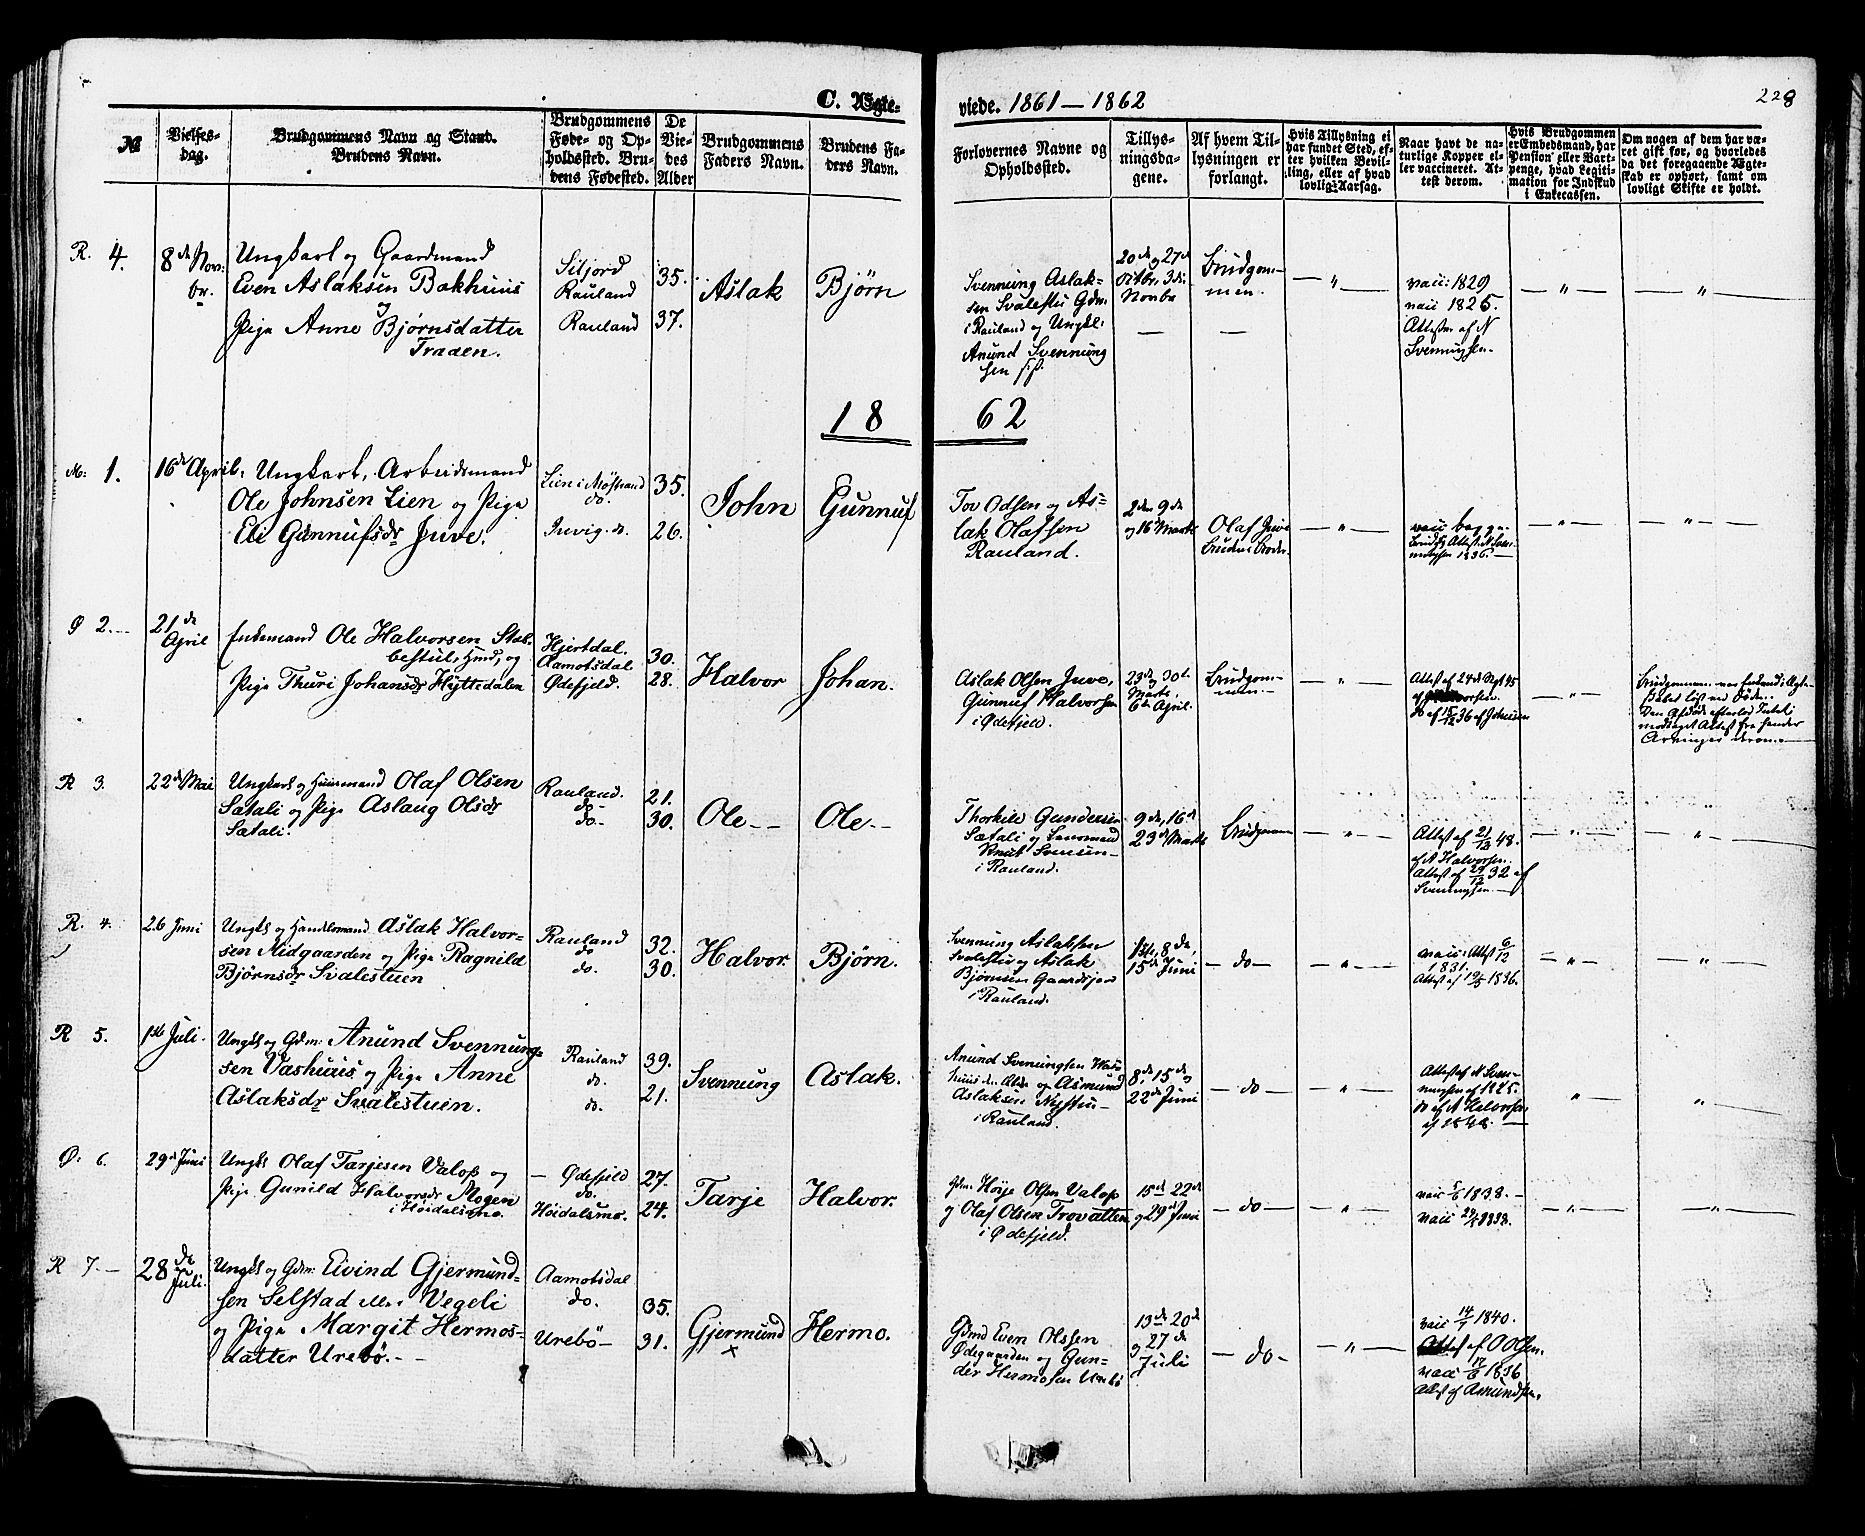 C. Ægte-
viede. 1861 — 1862
228
№
Vielses-
dag.
Brudgommens Navn og Stand.
Brudens Navn.
Brudgommens
Føde- og Op-
holdssted. Bru-
dens Fødested.
De
Vie-
des
Alder
Brudgommens
Faders Navn.
Brudens Fa-
ders Navn.
Forlovernes Navne og
Opholdssted.
Tillys-
ningsda-
gene.
Af hvem Til-
lysningen er
forlangt.
Hvis Tillysning ei
har fundet Sted, ef-
ter hvilken Bevil-
ling, eller af hvad
lovlig Aarsag.
Naar havt de na-
turlige Kopper el-
ler vaccineret. At-
test derom.
Hvis Brudgommen
er Embedsmand, har
Pension eller Vart-
penge, hvad Legiti-
mation for Indskud
i Enkecassen.
Om nogen af dem har væ-
ret gift før, og hvorledes
da det foregaaende Ægte-
skab er ophørt, samt om
lovligt Skifte er holdt.
R. 4.
8de Novbr.
Ungkarl og Gaardmand
Even Aslaksen Bakhuus
og
Pige Anne Bjørnsdatter
Traaen.
Siljord
Rauland
Rauland
35.
37.
Aslak
Bjørn
Svennung Aslak-
sen Svalestu Gdm.
i Rauland og Ungk.
Anund Svennung
sen
20de og 27de
Octbr, 3die
Novbr
Brudgom-
men.
— " —
vacc: 1829
vacc 1825.
Attester af N
Svennugsen.
— " —
— " —
1862
M: 1.
16de April.
Ungkarl, Arbeidsmand
Ole Johnsen Lien og Pige
Eli Gunnufsdr Juve.
Lien i Møstrand
do.
35.
26.
John
Gunnuf
Tov Odsen og As-
lak Olafsen
Rauland.
2den 9de
og 16 Marts
Olaf Juve
Brudens Broder.
— " —
vacc begge.
1836. —
— " —
— " —
Ø 2.
21de
April
Enkemand Ole Halvorsen Stal-
bestul, Hmd, og
Pige Thuri Johansdr Hyttedalen
Hjertdal.
Aamotsdal
Ødefjeld.
30.
28.
Halvor
Johan.
Aslak Olsen Juve,
Gunnuf Halvorsen
i Ødefjeld.
23de og 30te
Marts,
6te April.
Brudgom-
men.
— " —
— " —
R 3.
22de Mai
Ungkarl og Huusmand Olaf Olsen
Sætali og Pige Aslaug Olsdr
Sætali.
Rauland.
do-
do-
21.
30.
Ole —
Ole —
Thorkild Gundersen
Sætali og Lensmand
Knut Svensen
i Rauland.
9de, 16de
23de Marts
Brudgommen
— " —
Attest af 21/12 48.
af N Halvorsen.
Attest af 29/12 32 af
Svennugsen —
— " —
"
R. 4.
26 Juni
Ungk og Handelsmand Aslak Halvor-
sen Midgaarden og Pige Ragnild
Bjørnsdr Svalestuen
Rauland
do
do.
32.
30.
Halvor.
Bjørn.
Svennung Aslaksen
Svalestu og Aslak
Bjørnsen Gaardsjord
i Rauland.
1ste, 8de,
15de Juni
— do —
— " —
vacc: Attest 6/12
1831.
Attest af 19/5 1836.
— " —
— " —
R 5.
1ste Juli.
Ungk og Gdm: Anund Svennung-
sen Vashuus og Pige Anne
Aslaksdr Svalestuen.
Rauland
do.
do.
39.
21.
Svennung
Aslak.
Anund Svennungsen Vas-
huus den Ældre og Asmund
Aslaksen Nystu
i Rauland.
8de, 15de og
22de Juni
— do —
— " —
Attest af N Sven-
nungsen af 1825.
do af N Halvorsen
af 1848. —
"
"
Ø: 6.
29de Juni
Ungk Olaf Tarjesen Valop og
Pige Gunild Halvorsdr Mogen
i Høidalsmo.
— Ødefjeld
do.
Høidalsmo.
27.
24.
Tarje
Halvor.
Gdm. Høije Olsen Valop
og Olaf Olsen Trovatten
i Ødefjeld.
15de 22de
og 29de Juni
— do —
— " —
vacc 5/6 1838. —
— " —
— " —
R 7. —
28de
Juli.
Ungk og Gdm. Eivind Gjermund-
sen Selstad Vegeli
og Pige Margit Hermos-
datter Urebø. —
Aamotsdal
do.
Urebö —
35.
31.
Gjermund
Hermo.
Gdmd Even Olssen
Ødegaarden og Gun-
der Hermosen Urebø
13de 20de
og 27de
Juli
— do —
— " —
vacc 14/7 1840.
Attest af O Olsen.
vacc 17/6 1836
Attest af Amundsen.